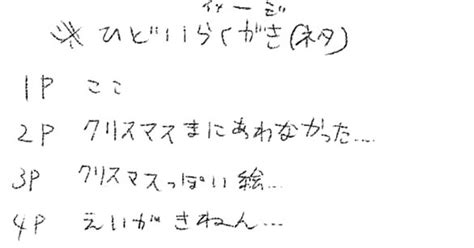 ※ ひどいらくがき(ネタ)
1P ここ
2P クリスマスまにあわなかった....
3P クリスマスっぽい絵...
4P えいがきねん...